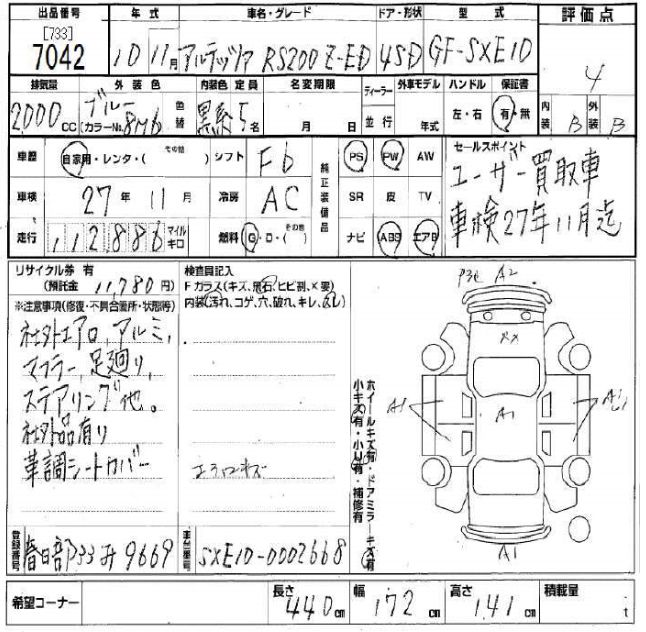 出品番号 年式 車名・グレード ドア・形状 型式 評価点
[733]
7042 10 11月 アルテッツァ RS200 Z-ED 4SD GF-SXE10 4
排気量 外装色 内装色 定員 名変期限 ディーラー 外車モデル ハンドル 保証書 内装 外装
2000 CC ブルー カラーNo. 8M6 色替 黒系 5名 月 日 並行 年式 左・右 有・無 B B
車歴 自家用・レンタ・( その他 ) シフト F6 純正装備品 PS PW AW セールスポイント
車検 27年 11月 冷房 AC SR 皮 TV ユーザー買取車
走行 112,886 マイル キロ 燃料 G・D・( その他 ) ナビ ABS エアB 車検27年11月迄
リサイクル券 有
(預託金 11,780 円)
検査員記入
Fガラス(キズ、飛石、ヒビ割、X要)
内装(汚れ、コゲ、穴、破れ、キレ、スレ)
※注意事項(修復・不具合箇所・状態等)
社外エアロ、アルミ、
マフラー、足廻り、
ステアリング他。
社外品有り
革調シートカバー
エアロキズ
A2
A1
A1
A1
ホイールキズ有・ドアミラーキズ有
小キズ有・小U有・補修有
登録番号 春日部 33 9669 車台番号 SXE10-0002668
希望コーナー 長さ 440cm 幅 172cm 高さ 141cm 積載量 t